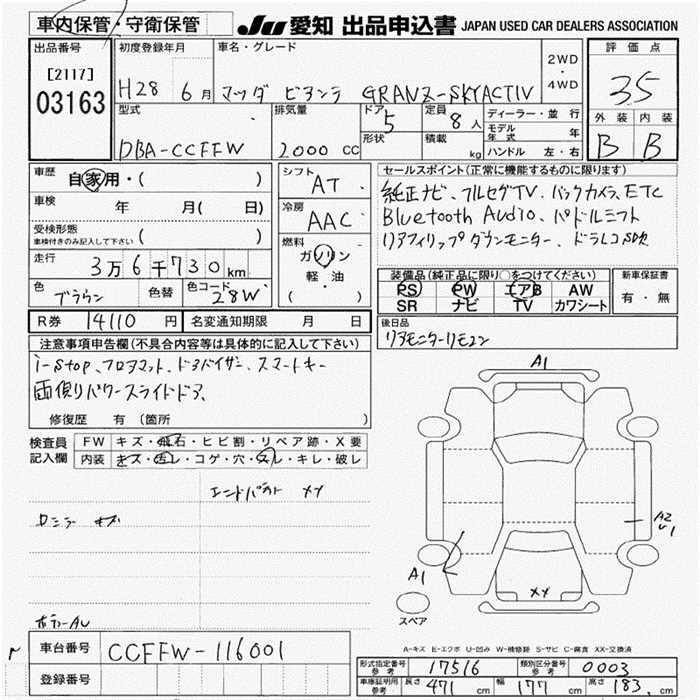 車内保管・守衛保管 JU 愛知 出品申込書 JAPAN USED CAR DEALERS ASSOCIATION
出品番号 初度登録年月 車名・グレード 2WD・4WD 評価点
[2117] 03163 H28 6月 マツダ ビアンテ GRANZ-SKYACTIV 35
型式 排気量 ドア 定員 ディーラー・並行 外装 内装
5 8人 モデル年式 年
DBA-CCFFW 2000 CC 形状 積載 kg ハンドル 左・右 B B
車歴 自家用・( ) シフト AT セールスポイント(正常に機能するものに限ります)
車検 年 月( 日) 冷房 AAC 純正ナビ、フルセグTV、バックカメラ、ETC
受検形態 車検付きのみ記入して下さい ( ) Bluetooth Audio、パドルシフト
走行 3万6千730km 燃料 ガソリン 軽・油 ( ) リアフィリップダウンモニター、ドラレコ
色 ブラウン 色替 色コード 28W
装備品(純正品に限り○をつけてください) 新車保証書
PS PW エアB AW 有・無
SR ナビ TV カワシート
R券 14110 円 名変通知期限 月 日 後日品
リアモニターリモコン
注意事項申告欄(不具合内容等は具体的に記入して下さい)
i-stop、フロアマット、ドアバイザー、スマートキー
両側パワースライドドア、
修復歴 有 (箇所 )
検査員記入欄 FW キズ・飛石・ヒビ割・リペア跡・X要
内装 キズ・汚レ・コゲ・穴・スレ・キレ・破レ
A1
エンドパネル XX
キズ
A2
U1
A1
XX
スペア
A-キズ E-エクボ U-凹み W-補修跡 S-サビ C-腐食 XX-交換済
車台番号 CCFFW-116001
登録番号
形式指定番号 参考 17516 類別区分番号 参考 0003
車庫証明用 参考 長さ 471 cm 幅 177 cm 高さ 183 cm